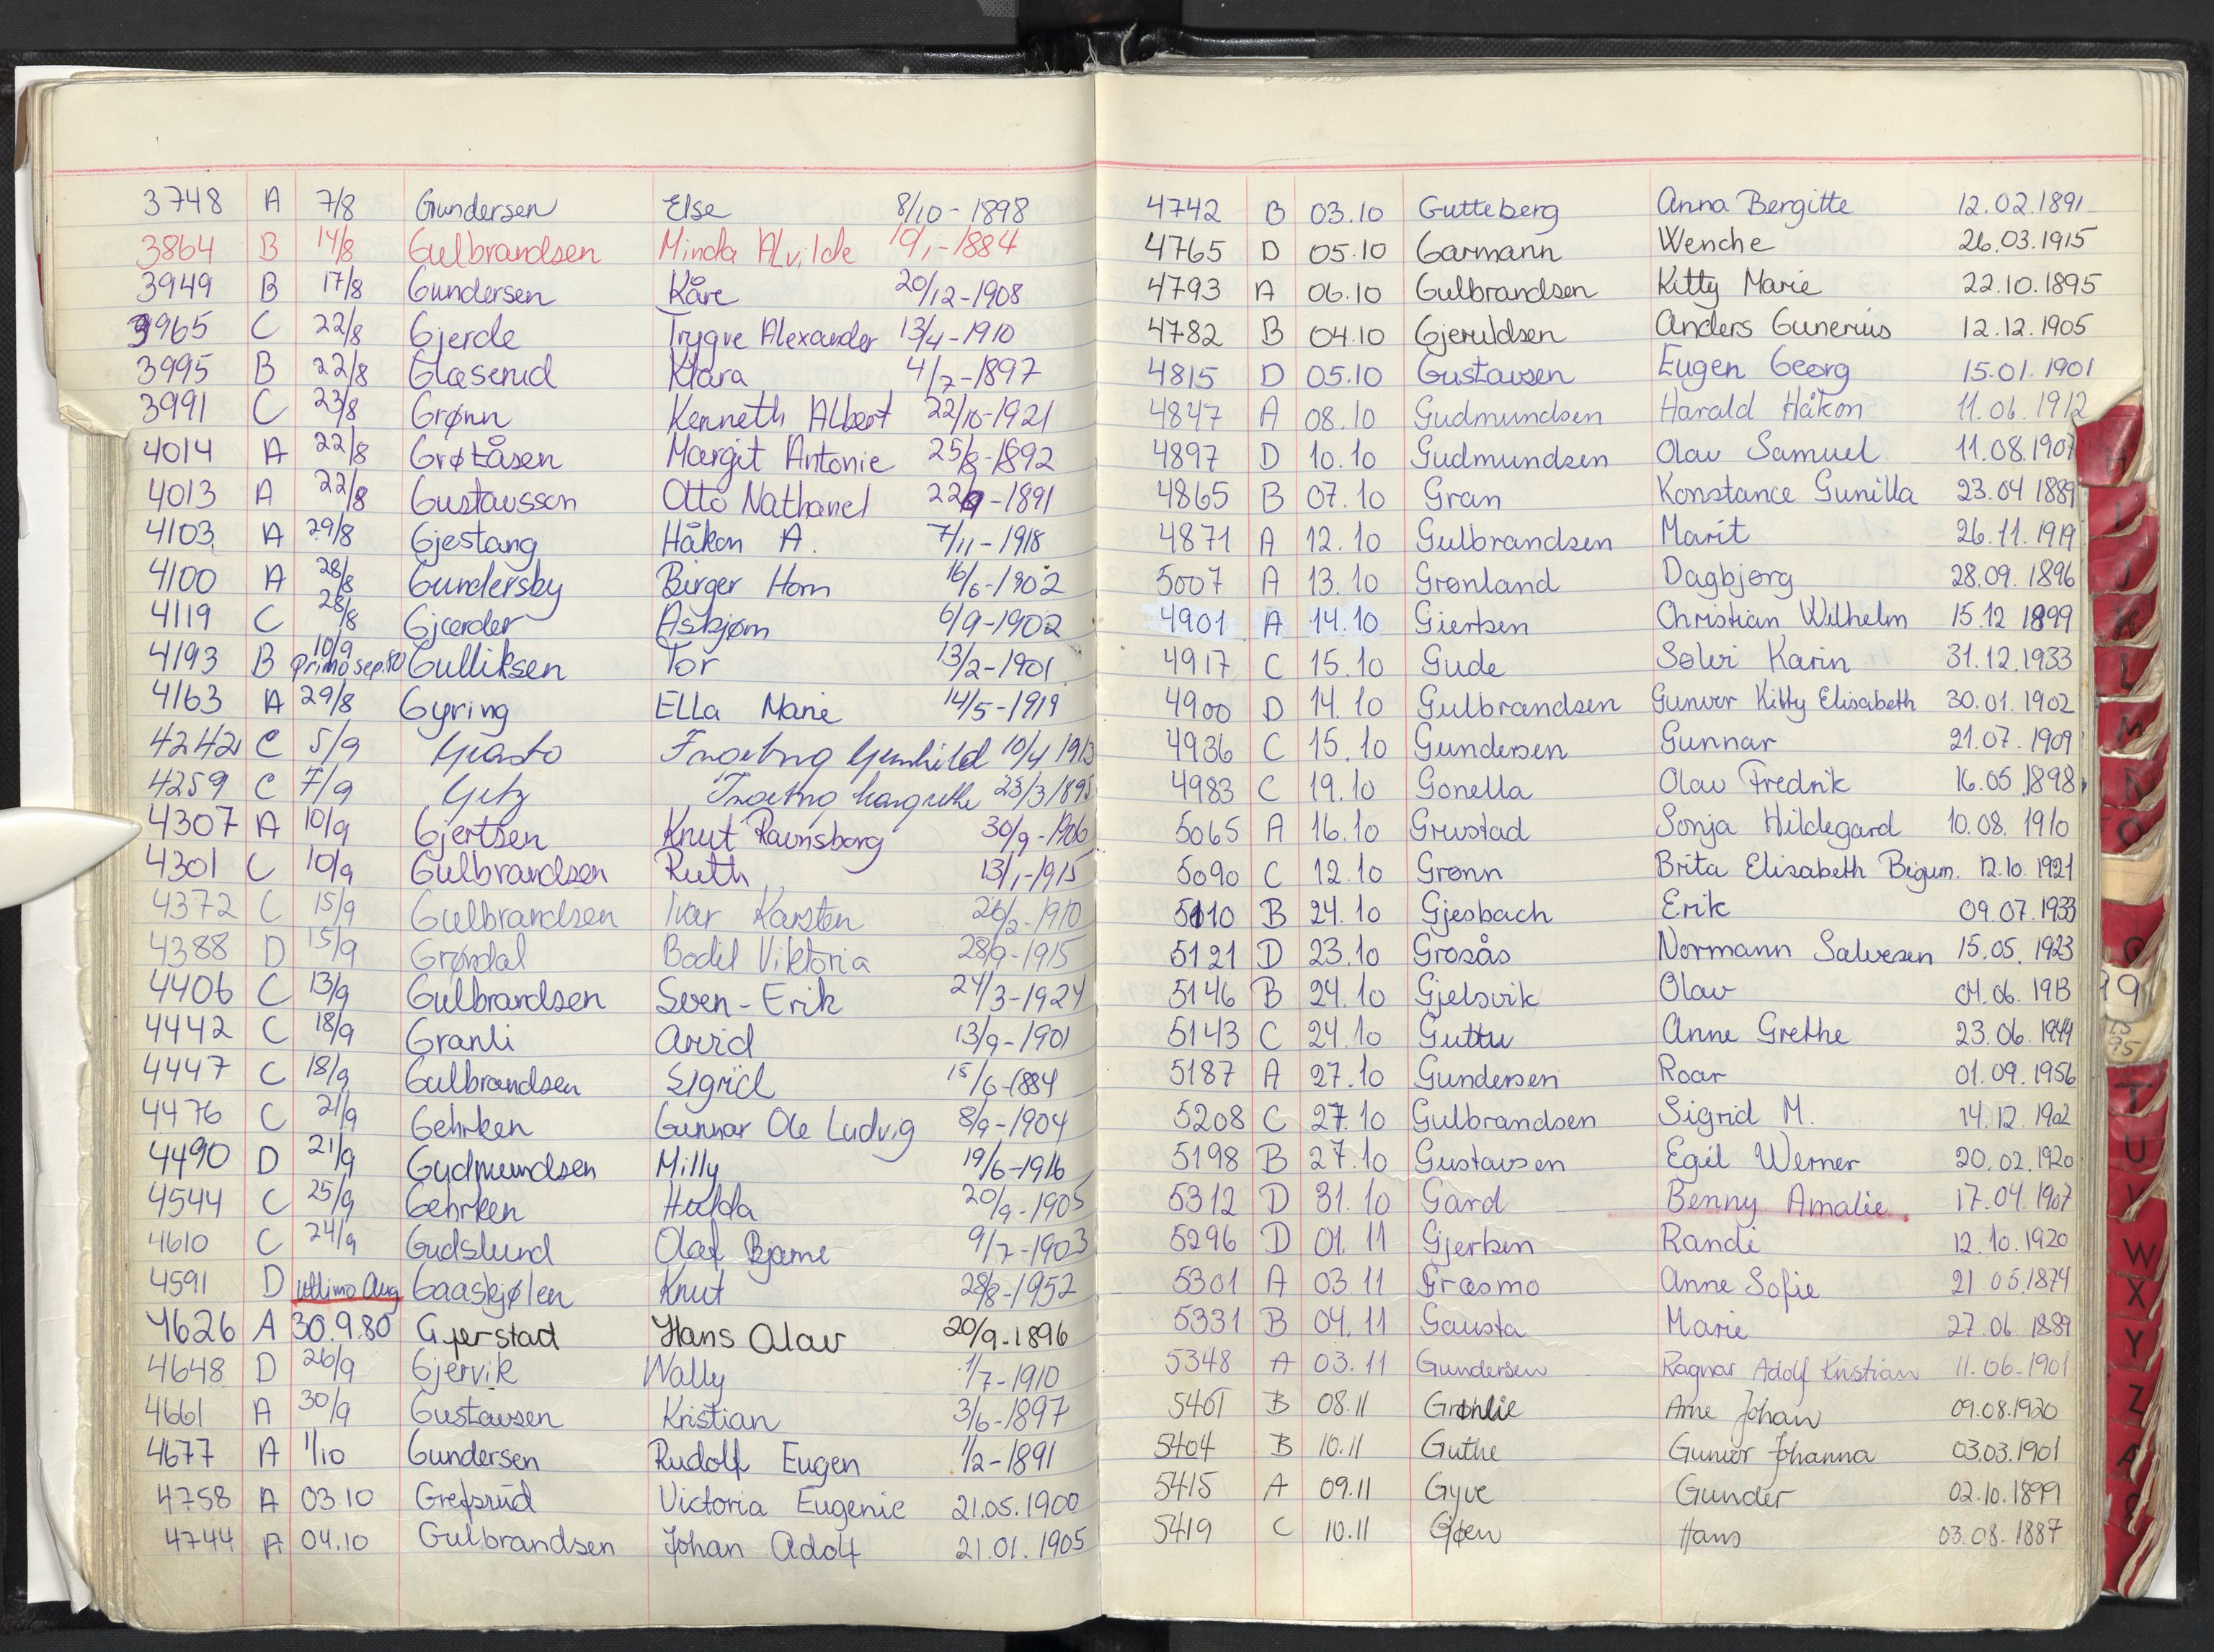 3748 A 7/8 Gundersen Else 8/10-1898
3864 B 14/8 Gulbrandsen Minda Alvilde 19/1-1884
3949 B 17/8 Gundersen Kåre 20/12-1908
3965 C 22/8 Gjerde Trygve Alexander 13/4-1910
3995 B 22/8 Glæserud Klara 4/7-1897
3991 C 23/8 Grønn Kenneth Albert 22/10-1921
4014 A 22/8 Grøtåsen Margit Antonie 25/8-1892
4013 A 22/8 Gustavsson Otto Nathanel -1891
4103 A 29/8 Gjestang Håkon A. 7/11-1918
4100 A 28/8 Gundersby Birger Horn 16/6-1902
4119 C 28/8 Gjærder Asbjørn 6/9-1902
4193 B 10/9 Primo sep.80 Gulliksen Tor 13/2-1901
4163 A 29/8 Gyring Ella Marie 14/5-1919
4242 C 5/9 Ingebrg Gunhild 10/4 1913
4259 C 7/9 Getz Ingebrg Margrethe 23/3/1895
4307 A 10/9 Gjertsen Knut Ravnsborg 30/9-1906
4301 C 10/9 Gulbrandsen Ruth 13/1-1915
4372 C 15/9 Gulbrandsen Ivar Karsten 26/2-1910
4388 D 15/9 Grøndal Bodil Viktoria 28/9-1915
4406 C 13/9 Gulbrandsen Sven-Erik 24/3-1924
4442 C 18/9 Granli Arvid 13/9-1901
4447 C 18/9 Gulbrandsen Sigrid 15/6-1884
4476 C 21/9 Gehrken Gunnar Ole Ludvig 8/9-1904
4490 D 21/9 Gudmundsen Milly 19/6-1916
4544 C 25/9 Gehrken Hulda 20/9-1905
4610 C 24/9 Gudslund Olaf Bjarne 9/7-1903
4591 D ultimo Aug Gaaskjølen Knut 28/8-1952
4626 A 30.9.80 Gjerstad Hans Olav 20/9-1896
4648 D 26/9 Gjervik Wally 1/7-1910
4661 A 30/9 Gustavsen Kristian 3/6-1897
4677 A 1/10 Gundersen Rudolf Eugen 1/2-1891
4758 A 03.10 Grefsrud Victoria Eugenie 21.05.1900
4744 A 04.10 Gulbrandsen Johan Adolf 21.01.1905
4742 B 03.10 Gutteberg Anna Bergitte 12.02.1891
4765 D 05.10 Garmann Wenche 26.03.1915
4793 A 06.10 Gulbrandsen Kitty Marie 22.10.1895
4782 B 04.10 Gjeruldsen Anders Gunerius 12.12.1905
4815 D 05.10 Gustavsen Eugen Georg 15.01.1901
4847 A 08.10 Gudmundsen Harald Håkon 11.06.1912
4897 D 10.10 Gudmundsen Olav Samuel 11.08.1907
4865 B 07.10 Gran Konstance Gunilla 23.04 1889
4871 A 12.10 Gulbrandsen Marit 26.11.1919
5007 A 13.10 Grønland Dagbjørg 28.09.1896
4901 A 14.10 Giertsen Christian Wilhelm 15.12 1899
4917 C 15.10 Gude Solvi Karin 31.12.1933
4900 D 14.10 Gulbrandsen Gunvor Kitty Elisabeth 30.01.1902
4936 C 15.10 Gundersen Gunnar 21.07.1909
4983 C 19.10 Gonella Olav Fredrik 16.05.1898
5065 A 16.10 Grustad Sonja Hildegard 10.08.1910
5090 C 12.10 Grønn Brita Elisabeth Bigum. 12.10.1921
5110 B 24.10 Gjesbach Erik 09.07.1933
5121 D 23.10 Grosås Normann Salvesen 15.05.1923
5146 B 24.10 Gjelsvik Olav 04.06.1913
5143 C 24.10 Guttu Anne Grethe 23.06.1949
5187 A 27.10 Gundersen Roar 01.09.1956
5208 C 27.10 Gulbrandsen Sigrid M. 14.12.1902
5198 B 27.10 Gustavsen Egil Werner 20.02.1920
5312 D 31.10 Gard Benny Amalie 17.04.1907
5296 D 01.11 Gjertsen Randi 12.10.1920
5301 A 03.11 Græsmo Anne Sofie 21.05.1874
5331 B 04.11 Gausta Marie 27.06.1889
5348 A 03.11 Gundersen Ragnar Adolf Kristian 11.06.1901
5401 B 08.11 Grønlie Arne Johan 09.08.1920
5404 B 10.11 Guthe Gunvor Johanna 03.03.1901
5415 A 09.11 Gyve Gunder 02.10.1899
5419 C 10.11 Gjøen Hans 03.08.1887
H
I
J
K
L
M
N
O
T
U
V
W
X
Y
Z